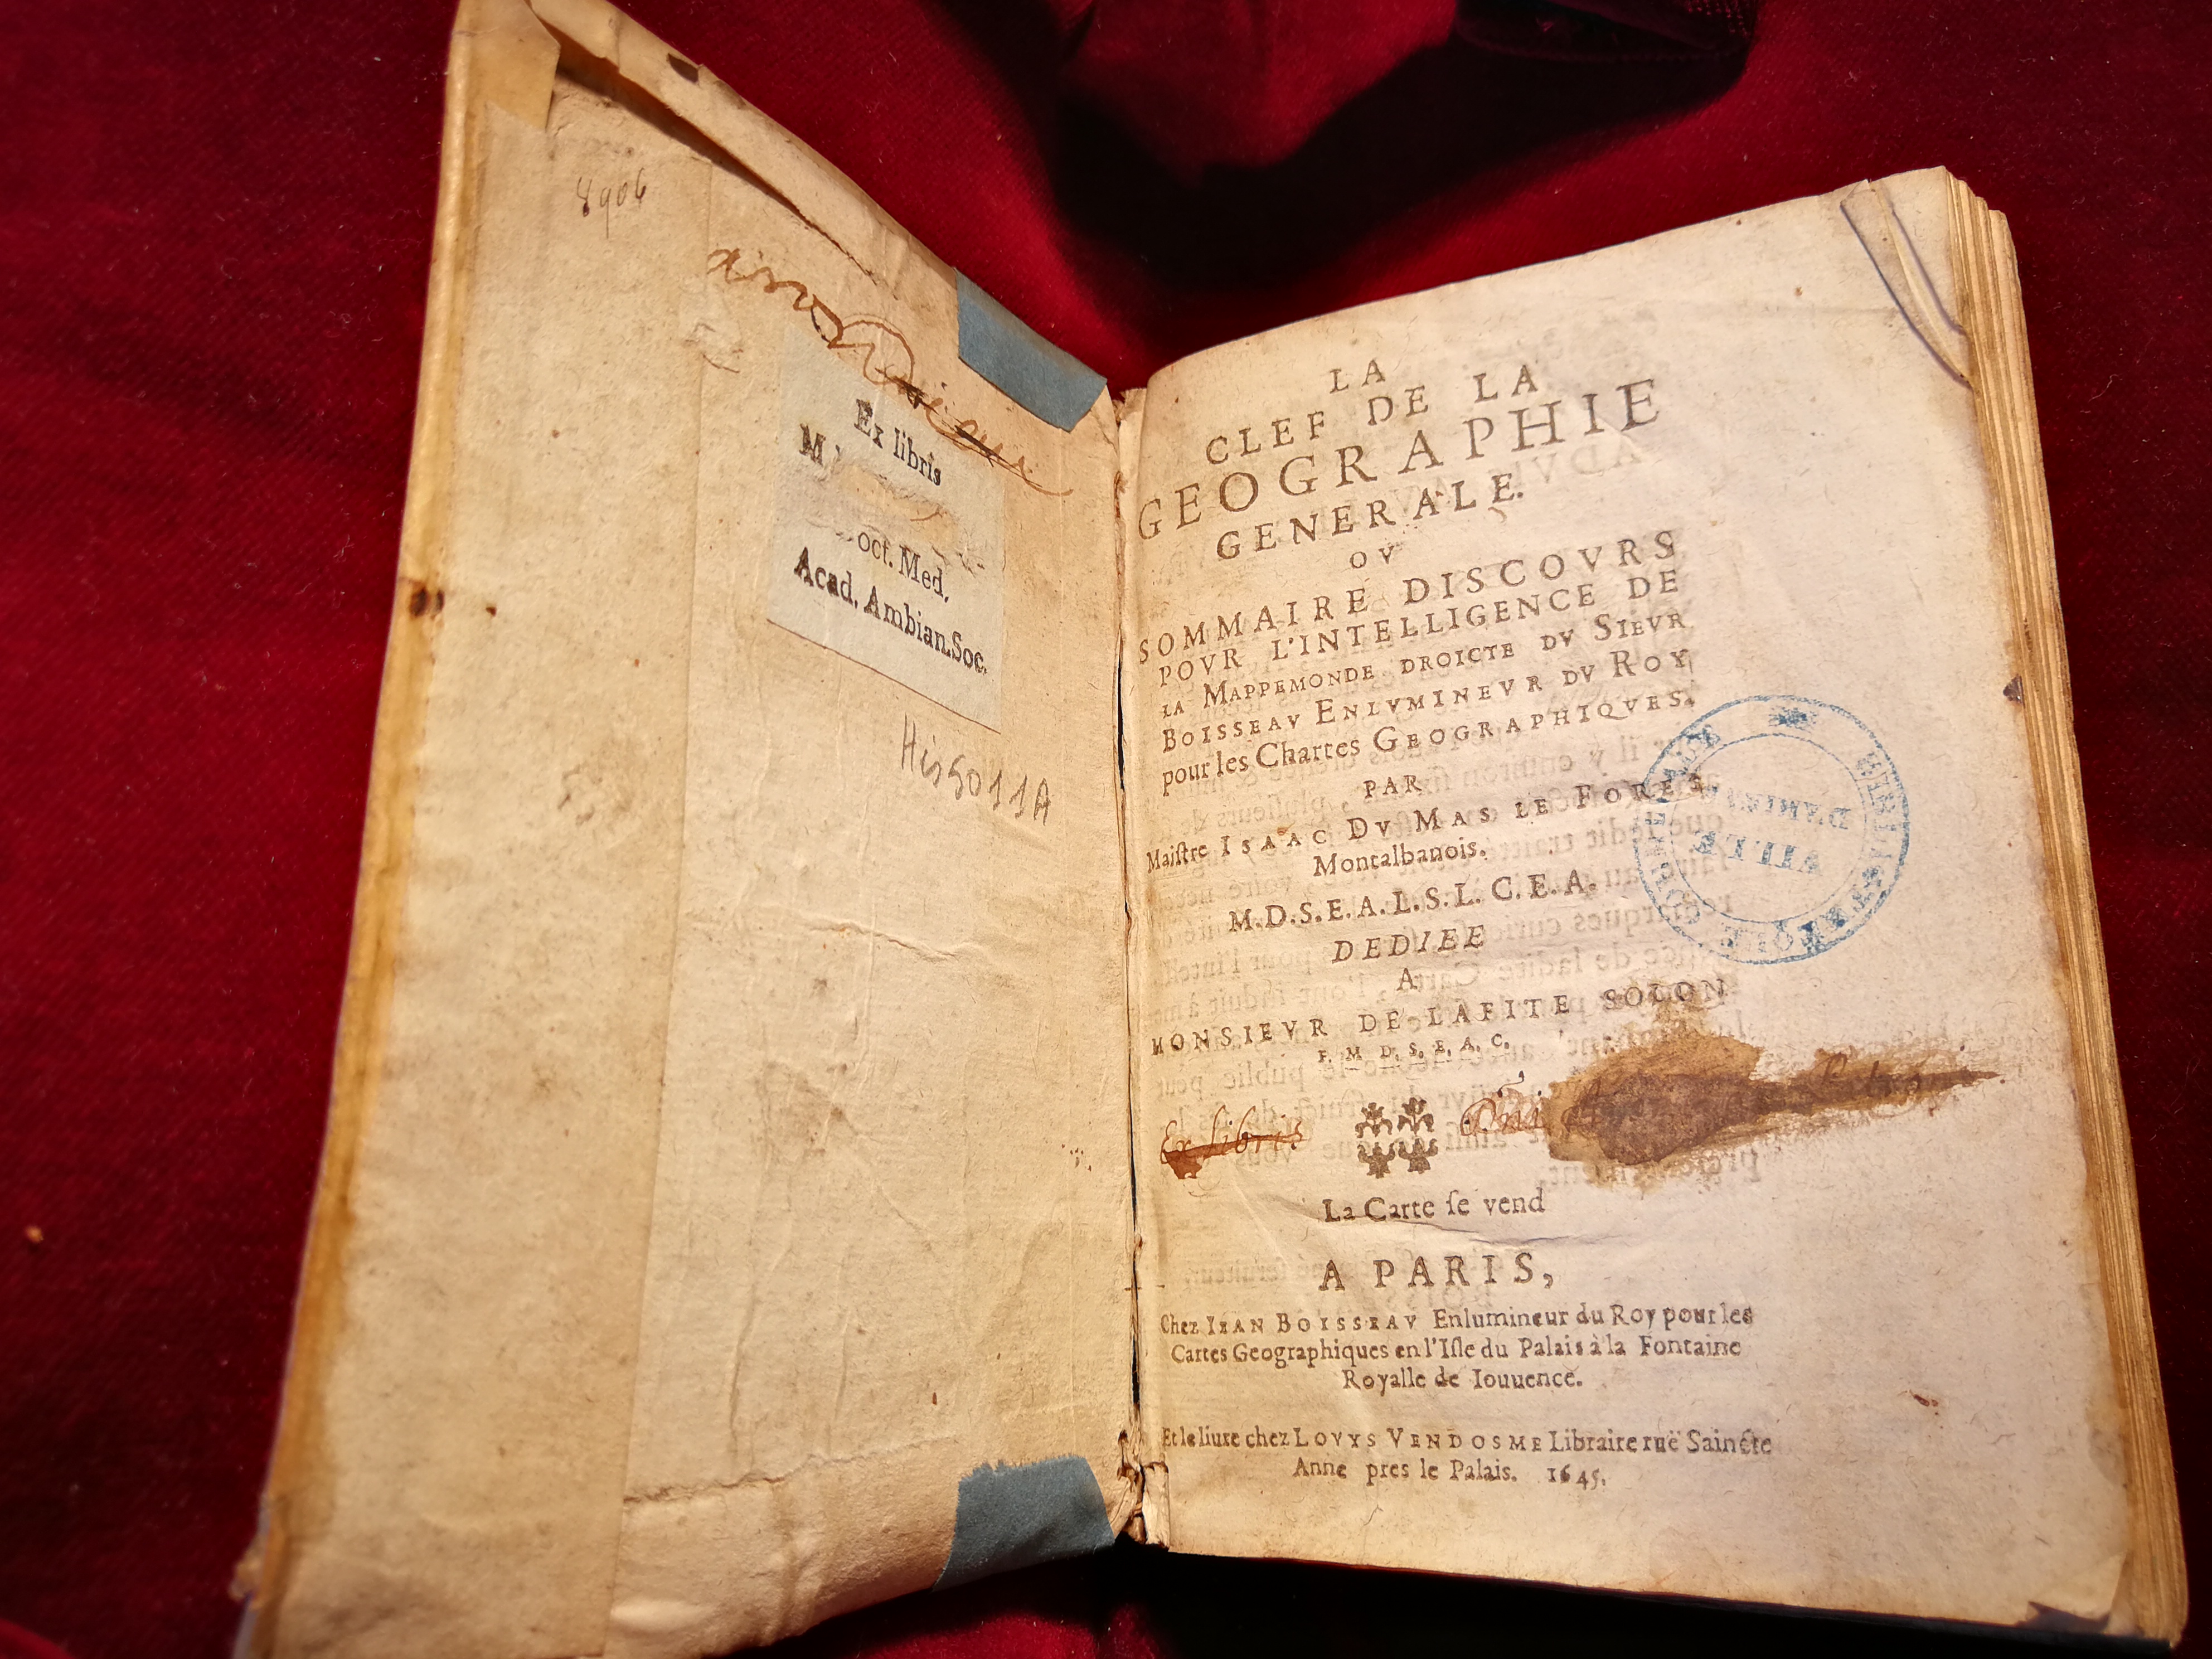 8906
Ex libris
M
oct. Med.
Acad. Ambian. Soc.
His 5011A
LA
CLEF DE LA
GEOGRAPHIE
GENERALE.
OV
SOMMAIRE DISCOVRS
POVR L'INTELLIGENCE DE
LA MAPPEMONDE DROICTE DV SIEVR
BOISSEAV ENLVMINEVR DV ROY
pour les Chartes GEOGRAPHIQVES.
PAR
Maiſtre ISAAC DV MAS LE FORES
Montalbanois.
M.D.S.E.A.L.S.L.C.E.A.
DEDIEE
A
MONSIEVR DE LAFITE SOLON
F. M D. S. E. A. C.
Ex libris
La Carte ſe vend
A PARIS,
Chez IEAN BOISSEAV Enlumineur du Roy pour les
Cartes Geographiques en l'Iſle du Palais à la Fontaine
Royalle de Iouuence.
Et le liure chez LOVYS VENDOSME Libraire ruë Saincte
Anne pres le Palais. 1645.
BIBLIOTHEQUE COMMUNALE
VILLE
D'AMIENS